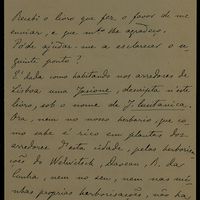 Recebi o livro que fez o favor de me
enviar, e que mto lhe agradeço.
Póde ajudar-me a esclarecer o se-
guinte ponto?
E' dada como habitando nos arredores de
Lisboa uma Jasione, descripta n'este
livro, sob o nome de J. lusitanica.
Ora, nem no nosso herbario, que co-
mo sabe é rico em plantas dos
arredores d'esta cidade, pelas herborisa-
ções do Welwitsch, Daveau, A. da
Cunha, nem no seu, nem nas mi-
nhas proprias herborisações, não ha,